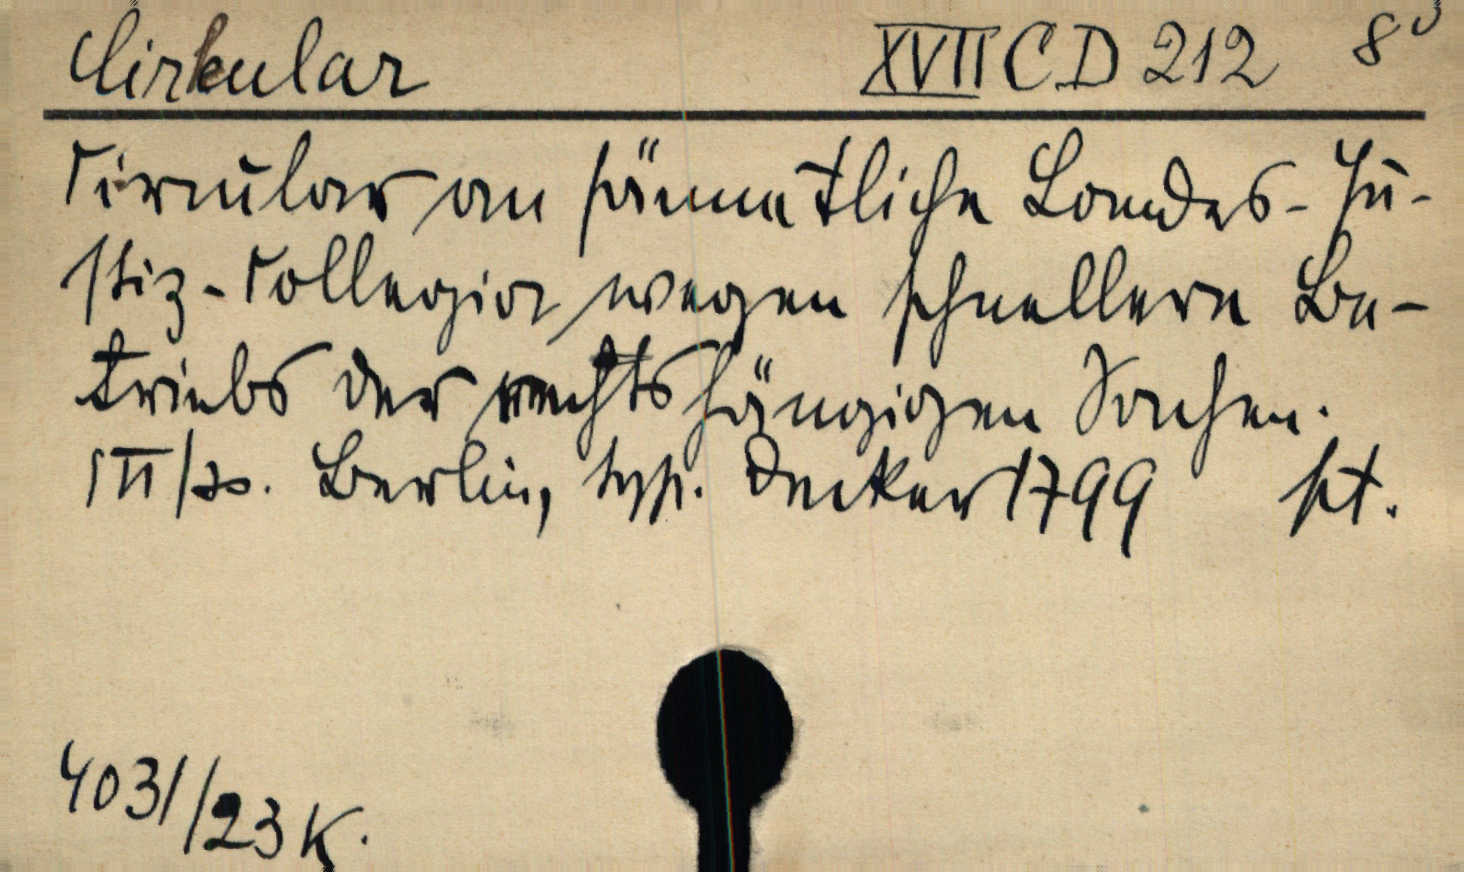 Cirkular XVII CD 212 8°
Circular an sämmtliche Landes-Ju-
stiz-Collegia wegen schnellern Be-
triebs der rechtshängigen Sachen.
Berlin, typ. Decker 1799
4031/23 K.